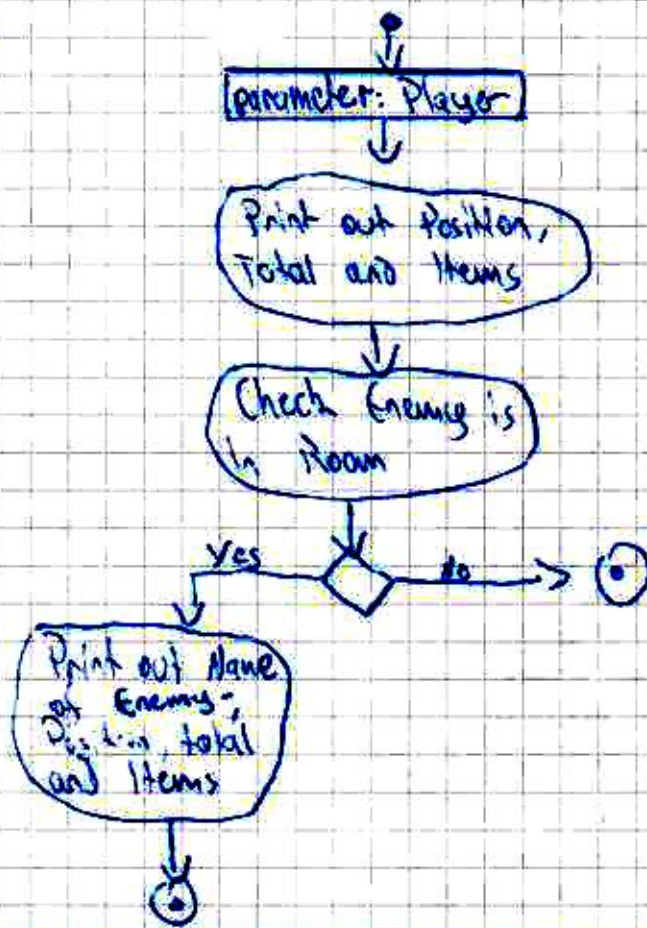 parameter: Player
Print out Position,
Total and Items
Check Enemy is
in Room
Yes
No
Print out Name
of Enemy,
Position, total
and Items